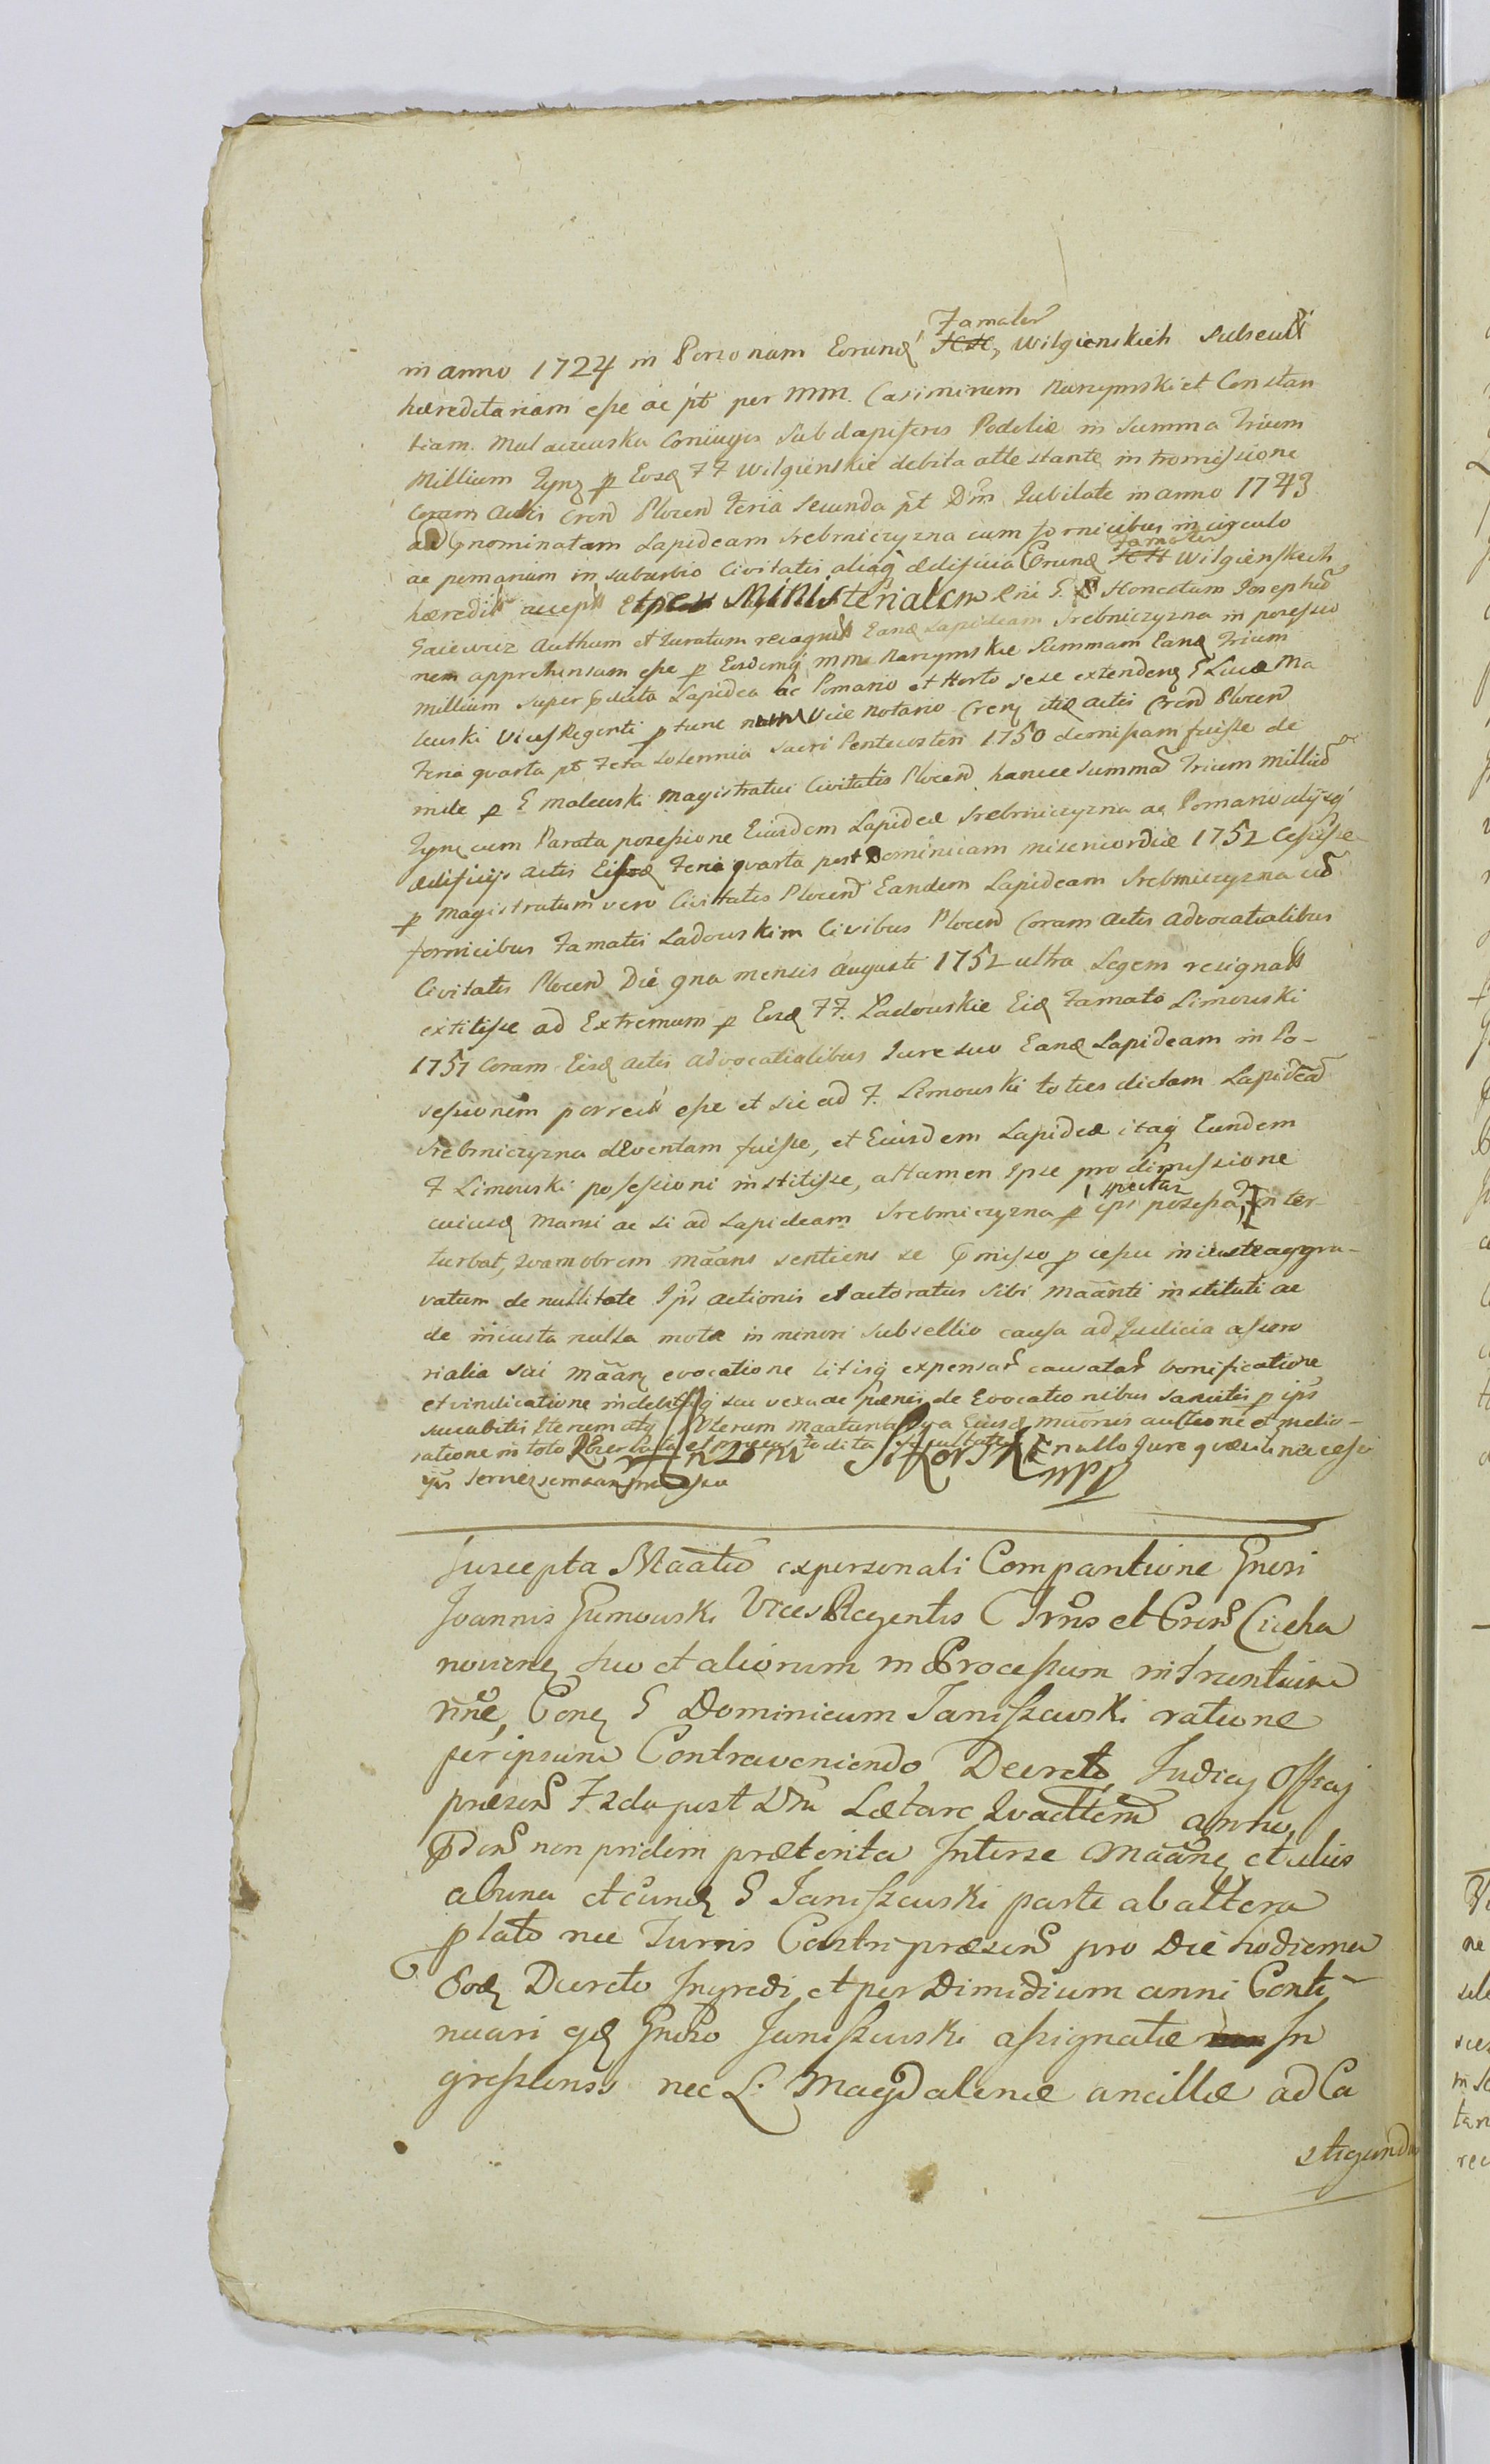 Famator
in anno 1724 in Personam Eorund Wilgienskich subsecut
hæreditariam esse ac pt per MM. Casimirum Narzymski et Constan
tiam Malaczewska Coniuges Subdapiferos Podoliæ in Summa Trium
Millium Tynf p Eosd FF Wilgienskie debita attestante intromissione
Coram Actis Cren Plocen Feria Secunda pt Dm Jubilate in anno 1743
ad nominatam Lapideam Srebrniczyzna cum fornicibus in circulo
ac pomarium in suburbio Civitatis aliaq ædificia Eorund Famator Wilgienskich
hæredit accept Et per Ministerialem Rni G. Honestum Joseph
Gaiewicz Authum et Juratum recognit Eand Lapideam Srebrniczyzna in possessio
nem apprehensam esse p Eosdemq MM Narzymskie Summam Eand Trium
Millium super dicta Lapidea ac Pomario et Horto sese extenden G Lucæ Ma
lewski Vices Regenti p tunc Vice Notario Cren itid actis Cren Plocen
Feria quarta pt Festa Solennia Sacri Pentecostes 1750 demissam fuisse de
inde p G Malewski Magistratui Civitatis Plocen hancce Summam Trium Millium
Tynf cum Parata possessione Eiusdem Lapideæ Srebrniczyzna ac Pomario alijsq
ædificijs actis Eisd Feria quarta post Dominicam Misericordiæ 1752 Cessisse
p Magistratum vero Civitatis Plocen Eandem Lapideam Srebrniczyzna cu
fornicibus Famatis Ladowskim Civibus Plocen Coram Actis Advocatialibus
Civitatis Plocen Die 9na mensis Augusti 1752 ultra Legem resignat
extitisse ad Extremum p Eosd FF. Ladowskie Eid Famato Limowski
1757 Coram Eisd actis advocatialibus Jure suo Eand Lapideam in Po-
sessionem porrect esse et sic ad F. Limowski toties dictam Lapidea
Srebrniczyzna deventam fuisse, et Eiusdem Lapideæ itaq Eundem
F Limowski possessioni institisse, attamen Ipse pro dimissione
cuiusd Mansi ac si ad Lapideam Srebrniczyzna p ipsi spectan possessa, inter-
turbat, Quamobrem Maans sentiens se misso p cessu iniuste aggra-
vatum de nullitate Ipsi actionis et actoratus sibi Maanti instituti ac
de iniusta nulla mota in minori subsellio causa ad Judicia assesso
rialia sui Maan evocatione litisq expensar causatar bonificatione
et vindicatione indebitq sui vexa ac pænis de Evocationibus sancitis p ips
sucubitis Iterum atq Iterum Maatur salva Eiusd Maonis auctione et melio-
ratione in toto Sikorski nullo Jure quæsi
mpp

Suscepta Maatio ex personali Comparitione Gnosi
Joannis Gumowski Vices Regentis C Trris et Cren Ciecha
novien suo et aliorum in Processum
nne, Con G Dominicum Janiszewski ratione
per ipsum Contraveniendo Decreto Judicy Offcij
præsen F 2da post Dm Lætare Quadlem anno
non pridem præterita Inter se Maan et alios
ab una et eund G Janiszewski parte ab altera
p lato nec Turris Castri præsen pro Die hodierna
Eod Decreto Ingredi et per Dimidium anni Conti-
nuari Gnoso Janiszewski assignatæ In
gressum nec L. Magdalenæ ancillæ ad Ca
stigandu